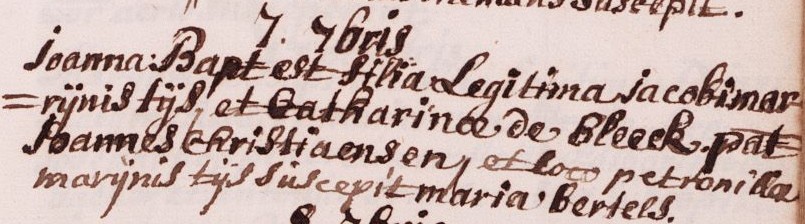 suscepit.
7. 7bris
Joanna: Bapt est filia Legitima jacobi mar=
=rijnis tijs, et Catharinæ de bleeck. pat
Joannes christiaensen, et loco petronillæ
marijnis tijs suscepit maria bertels.
8 7bris